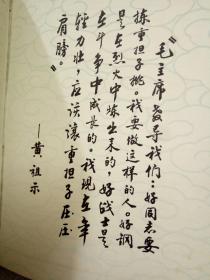 “毛主席教导我们：好同志要
拣重担子挑。我要做这样的人。好钢
是在烈火中炼出来的，好战士是
在斗争中成长的。我现在年
轻力壮，应该让重担子压压
肩膀。”
——黄祖示